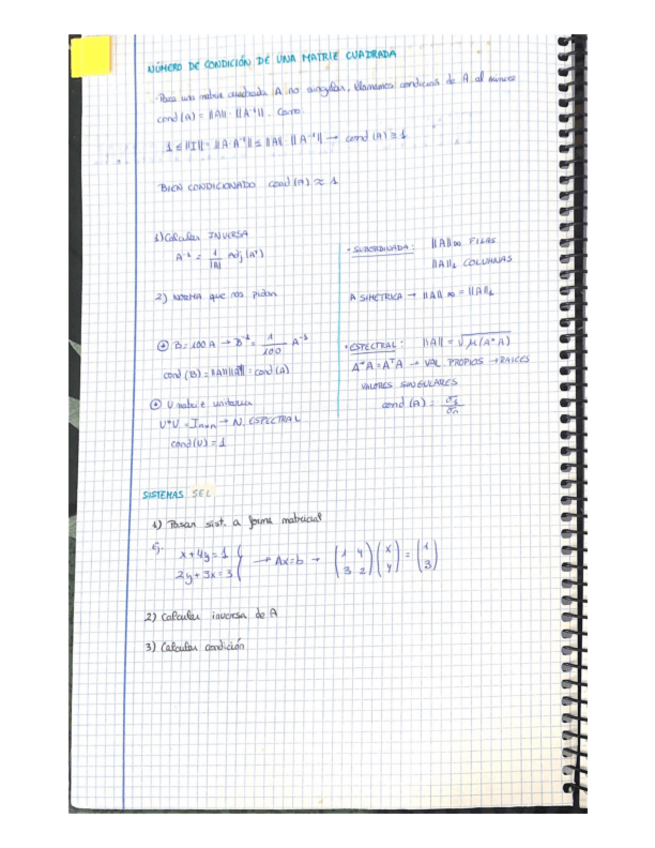 NÚMERO DE CONDICIÓN DE UNA MATRIZ CUADRADA
· Para una matriz cuadrada A no singular, llamamos condición de A al número
cond(A) = ||A|| · ||A⁻¹||. Como
1 ≤ ||I|| = ||A·A⁻¹|| ≤ ||A|| · ||A⁻¹|| → cond(A) ≥ 1
BIEN CONDICIONADO cond(A) ≈ 1
1) Calcular INVERSA
A⁻¹ = 1/|A| Adj(Aᵗ)
2) NORMA que nos pidan
⊙ B = 100A → B⁻¹ = 1/100 A⁻¹
cond(B) = ||A|| ||A⁻¹|| = cond(A)
⊙ U matriz unitaria
U*U = Iₙₓₙ → N. ESPECTRAL
cond(U) = 1
· SUBORDINADA: ||A||∞ FILAS
||A||₁ COLUMNAS
A SIMÉTRICA → ||A||∞ = ||A||₁
· ESPECTRAL: ||A|| = √μ(A*A)
A*A = AᵀA → VAL. PROPIOS → RAICES
VALORES SINGULARES
cond(A) = σ₁/σₙ
SISTEMAS SEL
1) Pasar sist. a forma matricial
Ej. x + 4y = 1
2y + 3x = 3 } → Ax = b → (1 4 / 3 2) (x / y) = (1 / 3)
2) Calcular inversa de A
3) Calcular condición